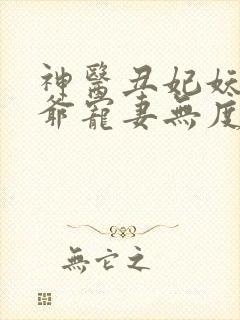 神醫丑妃妖
爺寵妻無度
無它之